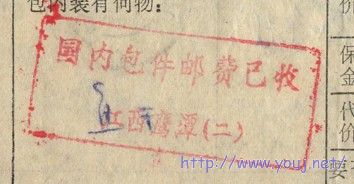 包内装有何物：
国内包件邮费已收
江西鹰潭(二)
价
保
金
代
价
要
http://www.youj.net/